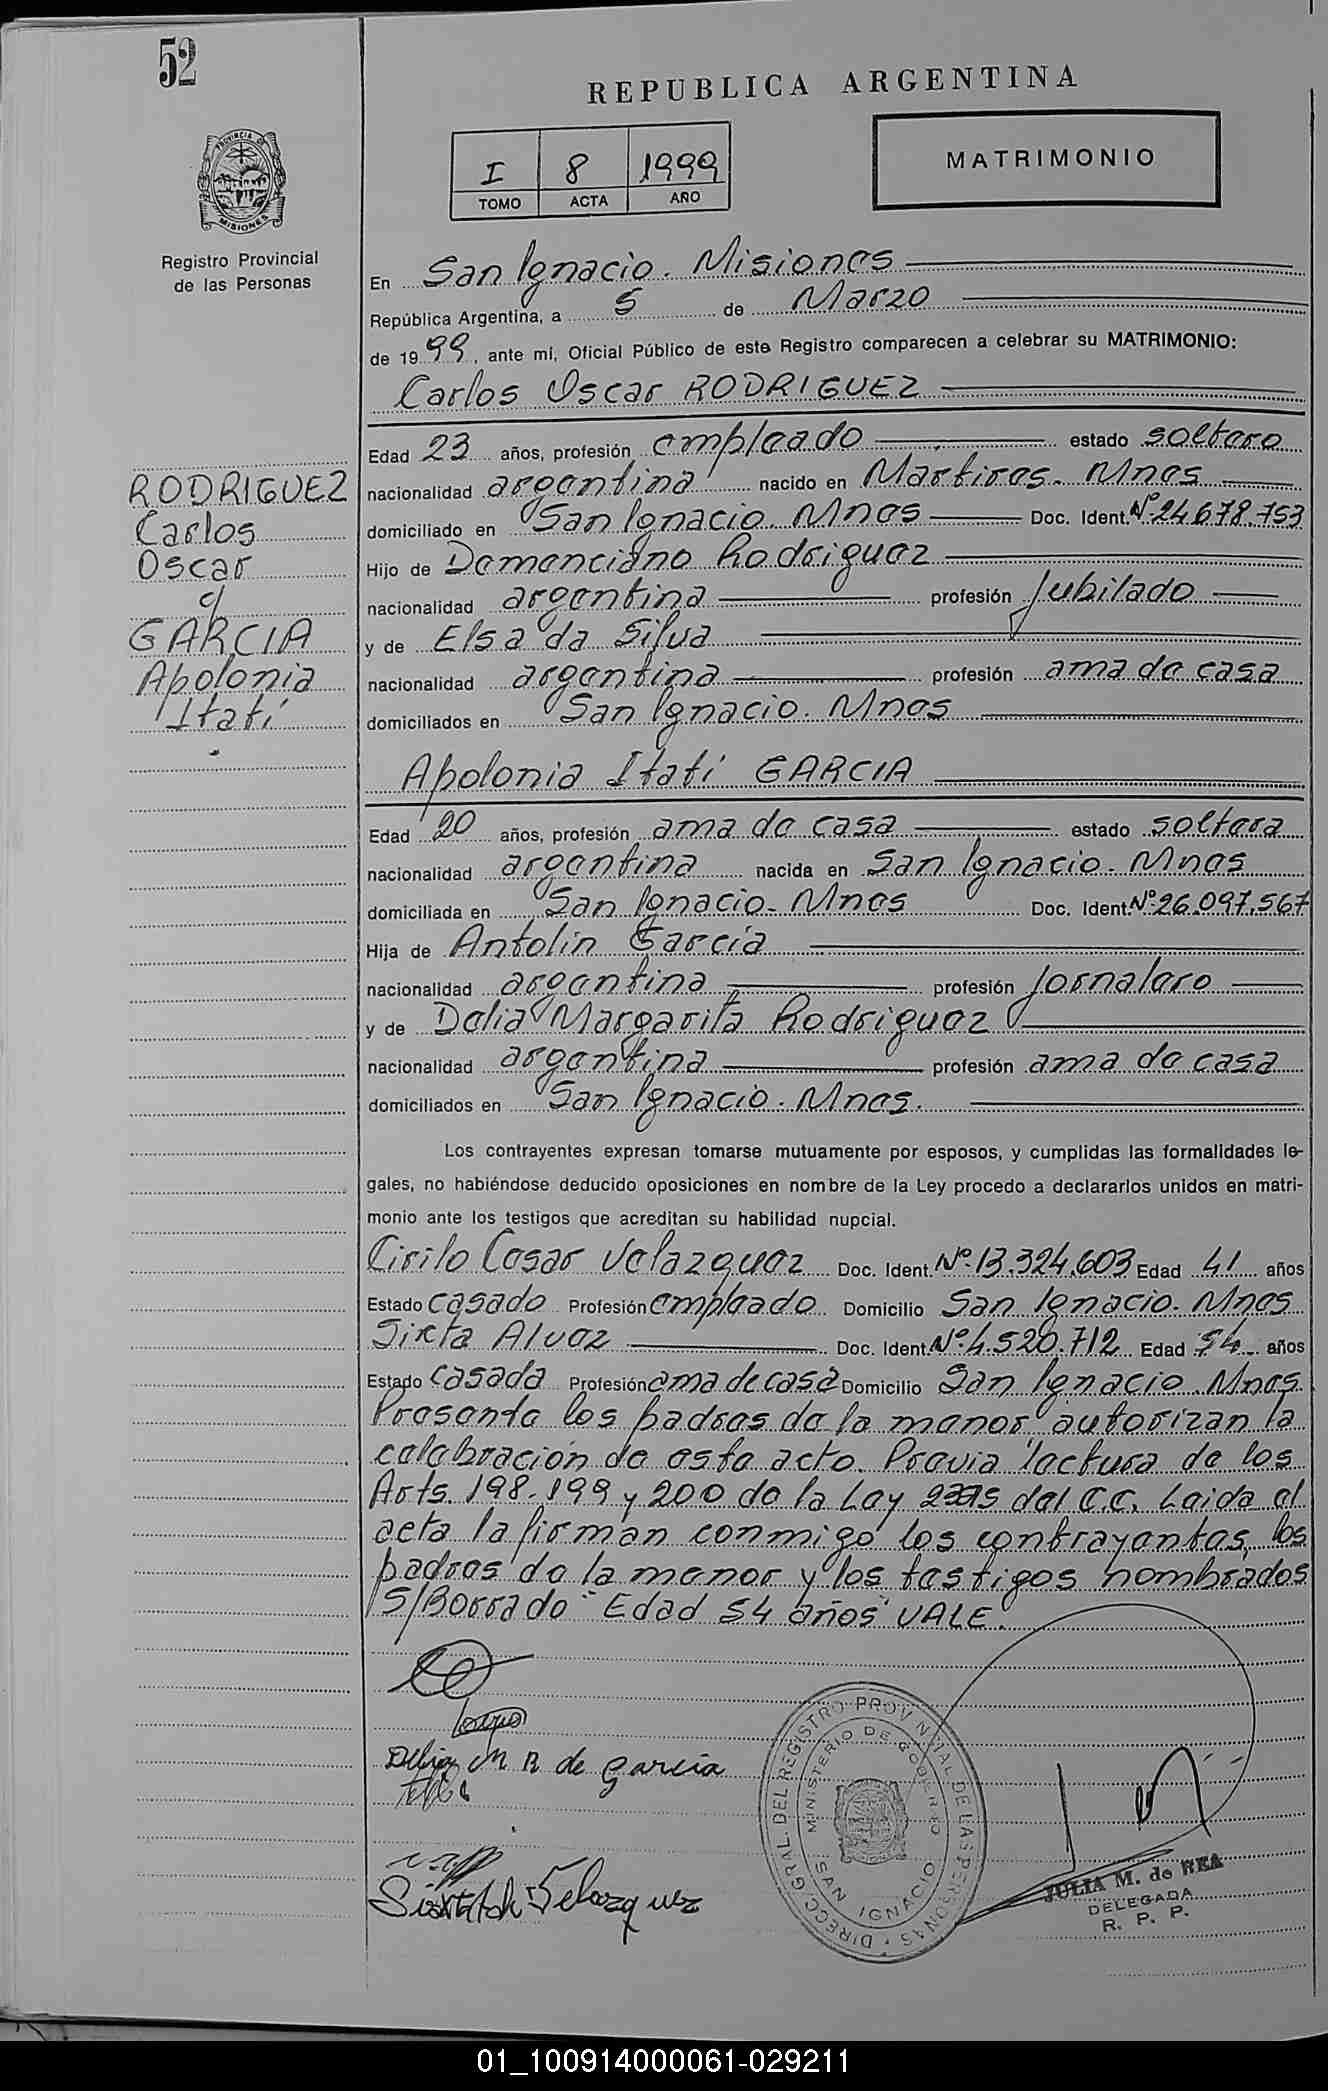 52
REPUBLICA ARGENTINA
I 8 1999
TOMO ACTA AÑO
MATRIMONIO
PROVINCIA DE MISIONES
Registro Provincial
de las Personas
En San Ignacio. Misiones
República Argentina, a 5 de Marzo
de 1999, ante mí, Oficial Público de este Registro comparecen a celebrar su MATRIMONIO:
Carlos Oscar RODRIGUEZ
Edad 23 años, profesión empleado estado soltero
nacionalidad argentina nacido en Martires. Mnes
domiciliado en San Ignacio. Mnes Doc. Ident. Nº 24.678.753
Hijo de Demenciano Rodriguez
nacionalidad argentina profesión Jubilado
y de Elsa da Silva
nacionalidad argentina profesión ama de casa
domiciliados en San Ignacio. Mnes
RODRIGUEZ
Carlos
Oscar
c/
GARCIA
Apolonia
Itatí
Apolonia Itatí GARCIA
Edad 20 años, profesión ama de casa estado soltera
nacionalidad argentina nacida en San Ignacio. Mnes
domiciliada en San Ignacio. Mnes Doc. Ident. Nº 26.097.567
Hija de Antolín García
nacionalidad argentina profesión Jornalero
y de Delia Margarita Rodriguez
nacionalidad argentina profesión ama de casa
domiciliados en San Ignacio. Mnes.
Los contrayentes expresan tomarse mutuamente por esposos, y cumplidas las formalidades le-
gales, no habiéndose deducido oposiciones en nombre de la Ley procedo a declararlos unidos en matri-
monio ante los testigos que acreditan su habilidad nupcial.
Cirilo Cesar Velazquez Doc. Ident. Nº 13.324.603 Edad 41 años
Estado casado Profesión empleado Domicilio San Ignacio. Mnes
Sixta Alvez Doc. Ident. Nº 4.520.712 Edad 54 años
Estado casada Profesión ama de casa Domicilio San Ignacio. Mnes.
Presente los padres de la menor autorizan la
celebración de este acto. Previa lectura de los
Arts. 198-199 y 200 de la Ley del C.C. Leida el
acta la firman conmigo los contrayentes, los
padres de la menor y los testigos nombrados
S/Borrado "Edad 54 años" VALE.
Delia M R de Garcia
Velazquez
DIRECC. GRAL. DEL REGISTRO PROVINCIAL DE LAS PERSONAS
MINISTERIO DE GOBIERNO
SAN IGNACIO
JULIA M. de REA
DELEGADA
R. P. P.
01_100914000061-029211